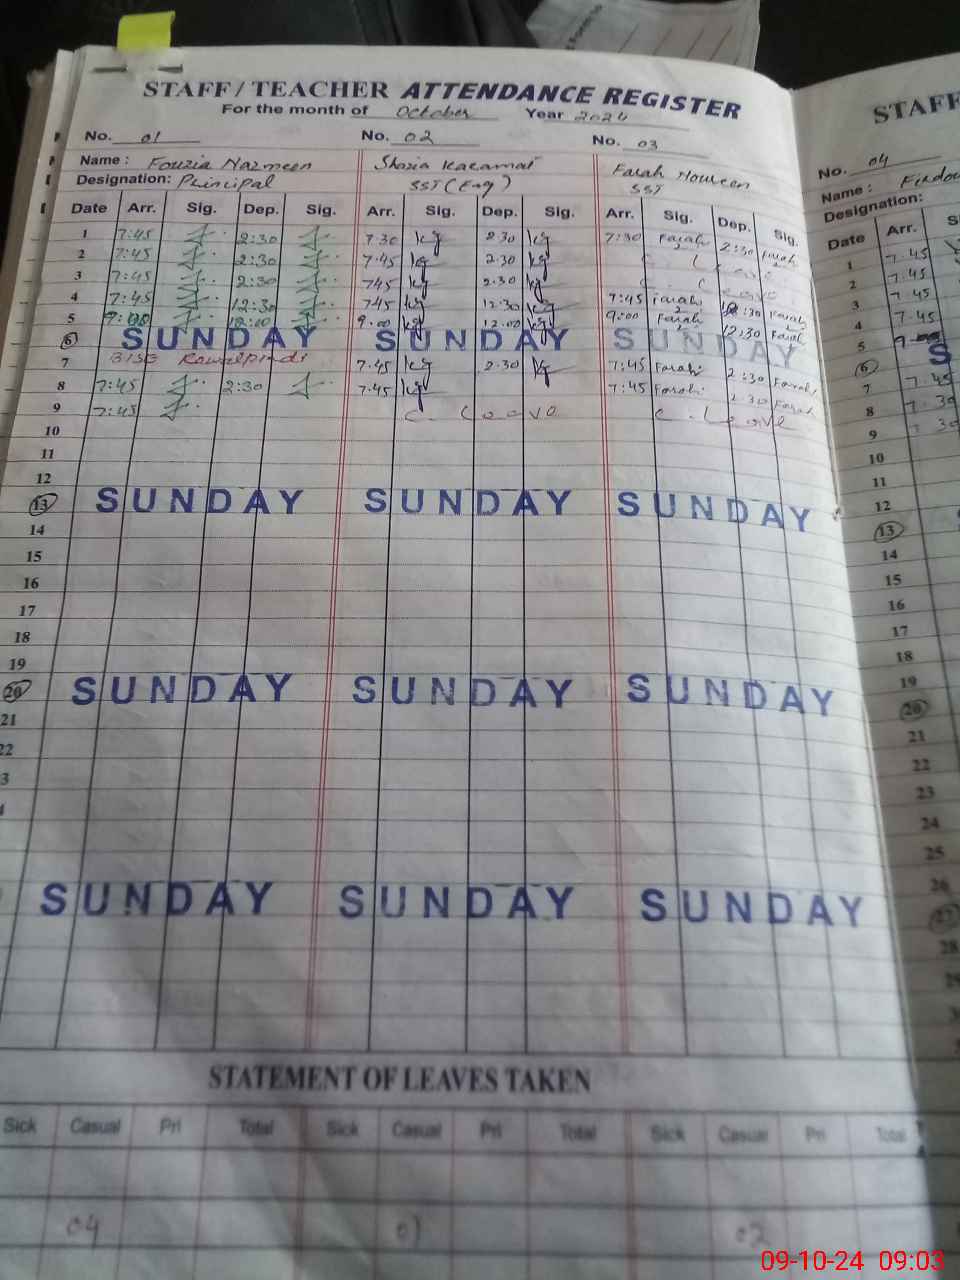 STAFF / TEACHER ATTENDANCE REGISTER
For the month of October Year 2024
No. 01 No. 02 No. 03
Name: Fouzia Nazneen Shazia Karamat Farah Noureen
Designation: Principal SST (Eng) SST
Date Arr. Sig. Dep. Sig. Arr. Sig. Dep. Sig. Arr. Sig. Dep. Sig.
1 7:45 2:30 7 30 kg 2 30 kg 7:30 Farah 2:30 Farah
2 7:45 2:30 7.45 kg 2.30 kg C. Leave
3 7:45 2:30 745 kg 2.30 kg C. Leave
4 7:45 12:30 745 kg 12.30 kg 7:45 Farah 12:30 Farah
5 9:00 12:00 9.00 kg 12.00 kg 9:00 Farah 12:30 Farah
6 SUNDAY SUNDAY SUNDAY
7 BISE Rawalpindi 7.45 kg 2.30 kg 7:45 Farah 2:30 Farah
8 7:45 2:30 7.45 kg 7:45 Farah 2.30 Farah
9 7:45 C. Leave C. Leave
10
11
12
13 SUNDAY SUNDAY SUNDAY
14
15
16
17
18
19
20 SUNDAY SUNDAY SUNDAY
21
22
SUNDAY SUNDAY SUNDAY
STATEMENT OF LEAVES TAKEN
Sick Casual Pri Total Sick Casual Pri Total Sick Casual Pri Total
04 01 02
STAFF
No. 04
Name:
Designation:
Date Arr.
1 7.45
2 7.45
3 7.45
4 7.45
5
6
7 7.45
8 7.30
9 7 30
10
11
12
13
14
15
16
17
18
19
20
21
22
23
24
25
26
27
28
09-10-24 09:03